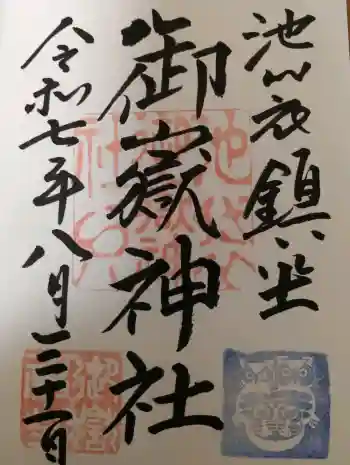 池袋鎮坐
御嶽神社
令和七年八月二十一日